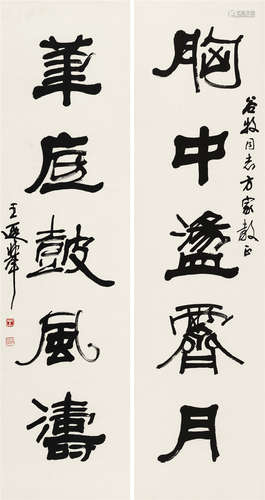 谷牧同志方家教正
胸中盪霽月
筆底鼓風濤
王遐舉